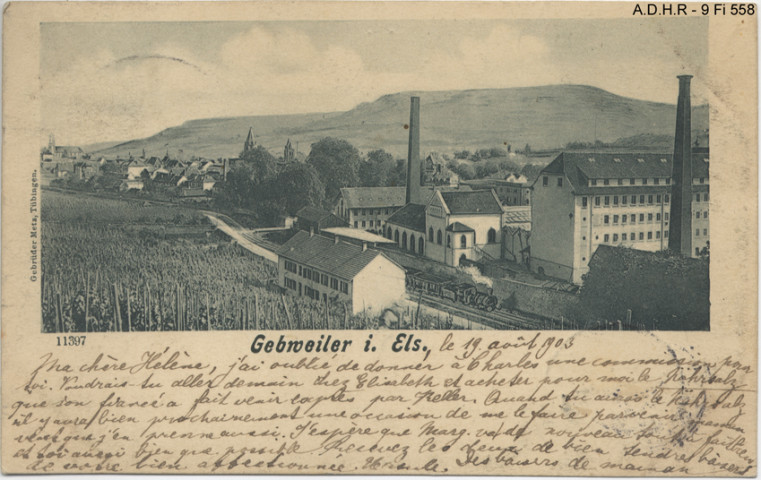 A.D.H.R - 9 Fi 558
Gebrüder Metz, Tübingen.
11397
Gebweiler i. Els., le 19 août 1903
Ma chère Hélène, j'ai oublié de donner à Charles une commission pour
toi. Voudrais-tu aller demain chez Elisabeth et acheter pour moi le
que son fiancé a fait venir exprès par Keller. Quand tu auras le
il y aura bien prochainement une occasion de me le faire parvenir. maman
veut que j'en prenne aussi. J'espère que Marg. va de nouveau tout à fait bien
et toi aussi bien que possible. Recevez les deux de bien tendres baisers
de votre bien affectionnée Des baisers de maman